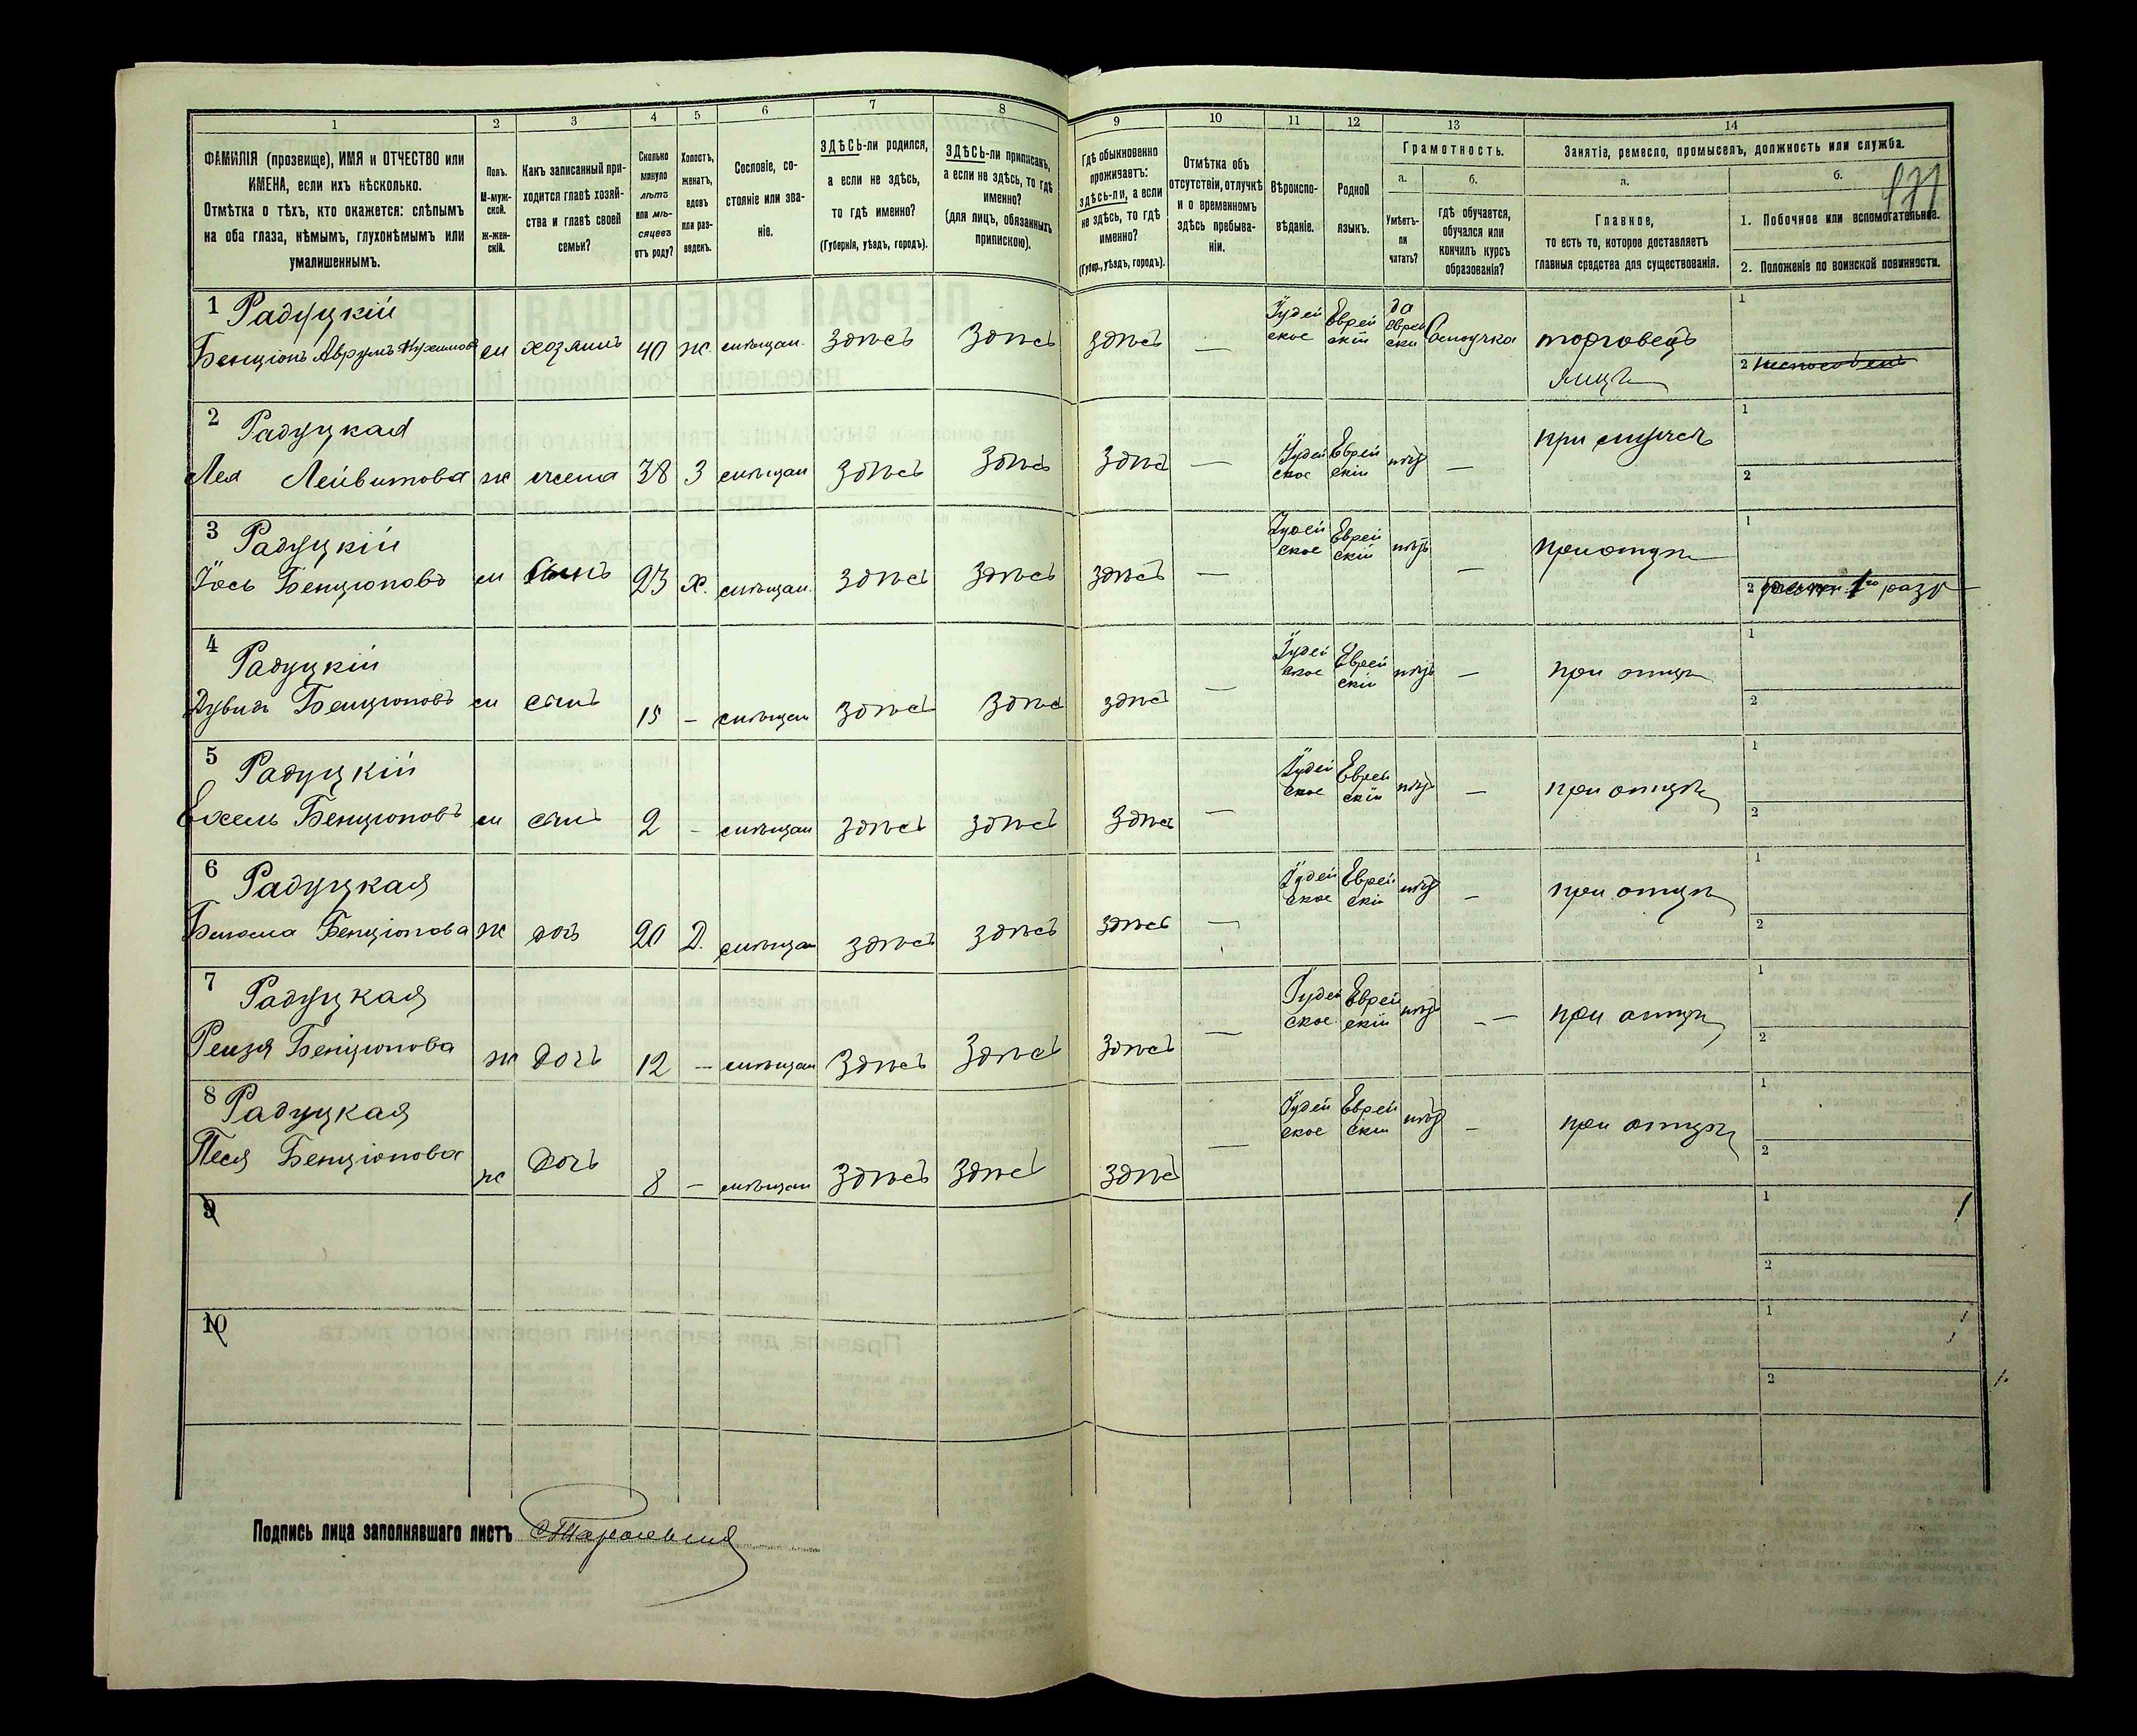 1 2 3 4 5 6 7 8 9 10 11 12 13 14
ФАМИЛІЯ (прозвище), ИМЯ и ОТЧЕСТВО или
ИМЕНА, если ихъ нѣсколько.
Отмѣтка о тѣхъ, кто окажется: слѣпымъ
на оба глаза, нѣмымъ, глухонѣмымъ или
умалишеннымъ.
Полъ.
М-муж-
ской.
Ж-жен-
скій.
Какъ записанный при-
ходится главѣ хозяй-
ства и главѣ своей
семьи?
Сколько
минуло
лѣтъ
или мѣ-
сяцевъ
отъ роду?
Холостъ,
женатъ,
вдовъ
или раз-
веденъ.
Сословіе, со-
стояніе или зва-
ніе.
ЗДѢСЬ-ли родился,
а если не здѣсь,
то гдѣ именно?
(Губернія, уѣздъ, городъ).
ЗДѢСЬ-ли приписанъ,
а если не здѣсь, то гдѣ
именно?
(для лицъ, обязанныхъ
припискою).
Гдѣ обыкновенно
проживаетъ:
здѣсь-ли, а если
не здѣсь, то гдѣ
именно?
(Губер., уѣздъ, городъ).
Отмѣтка объ
отсутствіи, отлучкѣ
и о временномъ
здѣсь пребыва-
ніи.
Вѣроиспо-
вѣданіе.
Родной
языкъ.
Грамотность.
а.
Умѣетъ-
ли
читать?
б.
гдѣ обучается,
обучался или
кончилъ курсъ
образованія?
Занятіе, ремесло, промыселъ, должность или служба.
а.
Главное,
то есть то, которое доставляетъ
главныя средства для существованія.
б.
1. Побочное или вспомогательное.
2. Положеніе по воинской повинности.
1 Радуцкій
Бенціонъ Аврумъ м хозяинъ 40 ж. мѣщан. здѣсь здѣсь здѣсь — Іудейское Еврейскій да торговецъ яицъ 1 2
2 Радуцкая
Лея Лейвикова ж жена 38 З мѣщан здѣсь здѣсь здѣсь — Іудейское Еврейскій нѣтъ — при мужѣ 1 2
3 Радуцкій
Іось Бенціоновъ м Сынъ 23 Х. мѣщан. здѣсь здѣсь здѣсь — Іудейское Еврейскій нѣтъ — при отцѣ 1 2 1го разр
4 Радуцкій
Дувидъ Бенціоновъ м сынъ 15 — мѣщан здѣсь здѣсь здѣсь — Іудейское Еврейскій нѣтъ — при отцѣ 1 2
5 Радуцкій
Бенціоновъ м сынъ 2 — мѣщан здѣсь здѣсь здѣсь — Іудейское Еврейскій нѣтъ — при отцѣ 1 2
6 Радуцкая
Бенціонова ж дочь 20 Д. мѣщан здѣсь здѣсь здѣсь — Іудейское Еврейскій нѣтъ — при отцѣ 1 2
7 Радуцкая
Рейзя Бенціонова ж дочь 12 — мѣщан здѣсь здѣсь здѣсь — Іудейское Еврейскій нѣтъ — при отцѣ 1 2
8 Радуцкая
Песя Бенціонова ж дочь 8 — мѣщан здѣсь здѣсь здѣсь — Іудейское Еврейскій нѣтъ — при отцѣ 1 2
9 1 2
10 1 2
Подпись лица заполнявшаго листъ